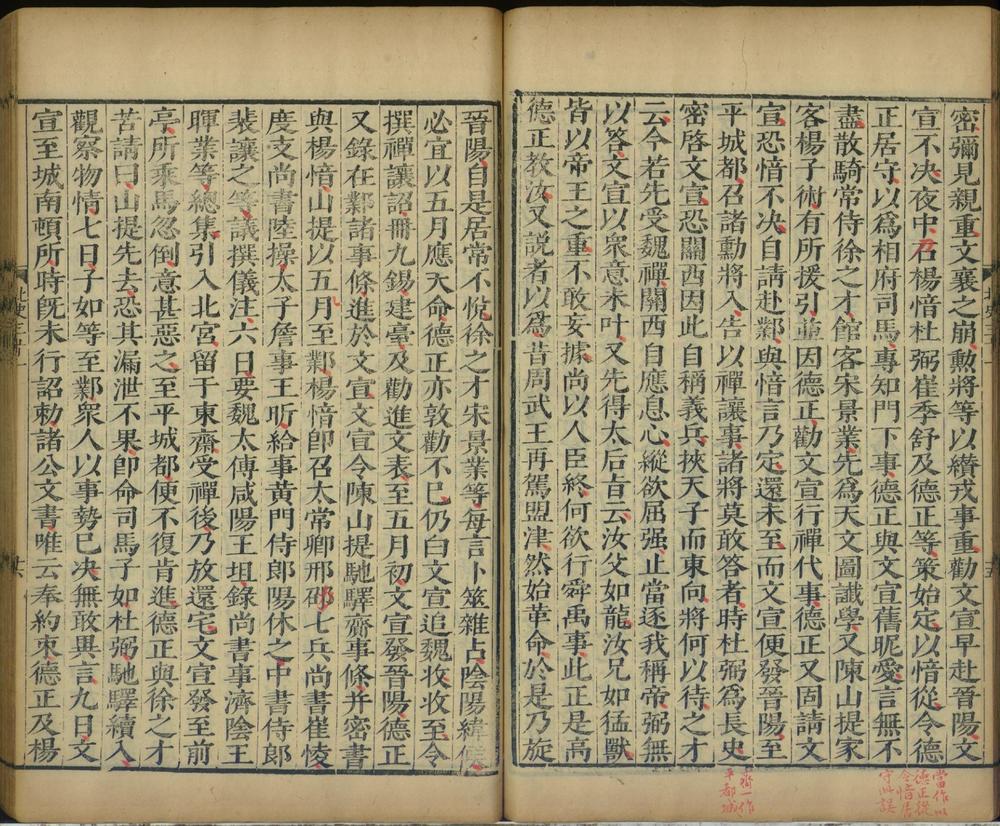 密彌見親重文襄之崩勲將等以纉戎事重勸文宣早赴晉陽文
宣不决夜中召楊愔杜弼崔季舒及德正等策始定以愔從令德
正居守以爲相府司馬專知門下事德正與文宣舊昵愛言無不
盡散騎常侍徐之才館客宋景業先爲天文圖讖學又陳山提家
客楊子術有所援引並因德正勸文宣行禪代事德正又固請文
宣恐愔不决自請赴鄴與愔言乃定還未至而文宣便發晉陽至
平城都召諸勳將入告以禪讓事諸將莫敢答者時杜弼爲長史
密啓文宣恐關西因此自稱義兵挾天子而東向將何以待之才
云今若先受魏禪關西自應息心縱欲屈强止當逐我稱帝弼無
以答文宣以衆意未叶又先得太后旨云汝父如龍汝兄如猛獸
皆以帝王之重不敢妄據尚以人臣終何欲行舜禹事此正是高
德正教汝又説者以爲昔周武王再駕盟津然始革命於是乃旋
晉陽自是居常不悅徐之才宋景業等每言卜筮雜占陰陽緯候
必宜以五月應天命德正亦敦勸不巳仍白文宣追魏收收至令
撰禪讓詔冊九錫建臺及勸進文表至五月初文宣發晉陽德正
又錄在鄴諸事條進於文宣文宣令陳山提馳驛齎事條并密書
與楊愔山提以五月至鄴楊愔卽召太常卿邢邵七兵尚書崔㥄
度支尚書陸操太子詹事王昕給事黃門侍郎陽休之中書侍郎
裴讓之等議撰儀注六日要魏太傅咸陽王坦錄尚書事濟陰王
暉業等總集引入北宮留于東齋受禪後乃放還宅文宣發至前
亭所乘馬忽倒意甚惡之至平城都便不復肯進德正與徐之才
苦請曰山提先去恐其漏泄不果卽命司馬子如杜弼馳驛續入
觀察物情七日子如等至鄴衆人以事勢巳决無敢異言九日文
宣至城南頓所時旣未行詔勅諸公文書唯云奉約束德正及楊
當作以
德正從
令愔居
守此誤
齊一作
平都城